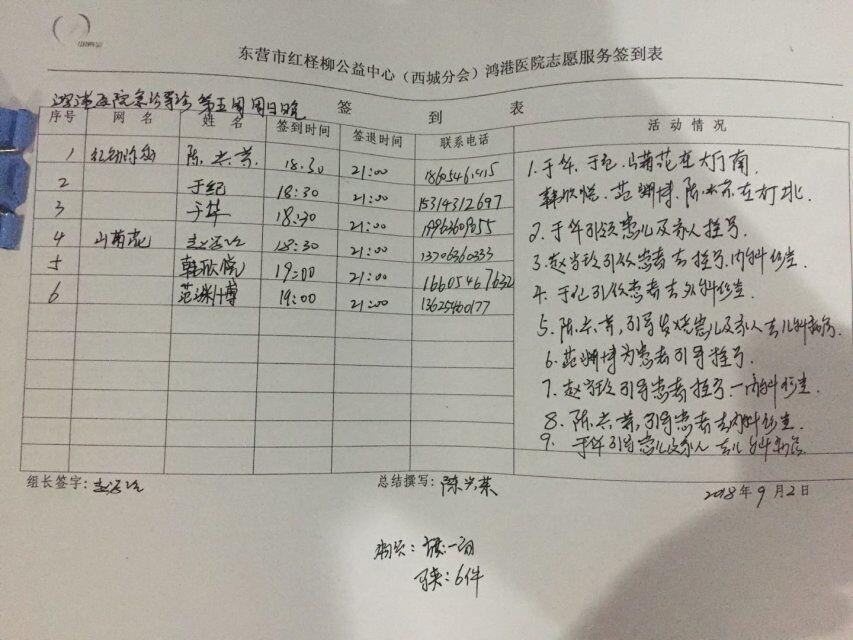 东营市红柽柳公益中心（西城分会）鸿港医院志愿服务签到表
鸿港医院急诊导诊 第五周周日晚 签 到 表
序号 网 名 姓 名 签到时间 签退时间 联系电话 活 动 情 况
1 陈兴荣 18:30 21:00
2 于纪 18:30 21:00 15314312697
3 于华 18:30 21:00
4 山菊花 18:30 21:00 13706360333
5 韩欣悦 19:00 21:00 16605467632
6 范渊博 19:00 21:00 13625460177
1.于华、于纪、山菊花在大厅南
韩欣悦、范渊博、陈兴荣在大厅北.
2.于华引领患儿及家人挂号.
3.赵 引领患者去挂号.内科就诊.
4.于纪引领患者去外科就诊.
5.陈兴荣,引导发烧患儿及家人去儿科就诊.
6.范渊博为患者引导挂号.
7.赵 引导患者挂号.一内科就诊.
8.陈兴荣,引导患者去内科就诊.
9.于华引导患儿及家人去儿外科就诊.
组长签字: 总结撰写:陈兴荣 2018年9月2日
:6件